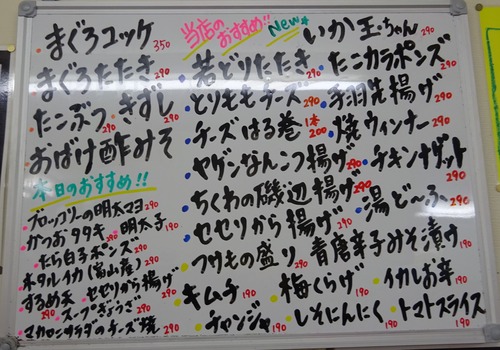 まぐろユッケ 350
まぐろたたき 290
たこぶつ 290 きずし 290
おばけ酢みそ 290
本日のおすすめ!!
ブロッコリーの明太マヨ 290
かつおタタキ 290 明太子 190
たら白子ポンズ 290
ホタルイカ(富山産) 290
するめ天 290 セセリから揚げ 290
スープぎょうざ 290
マカロニサラダのチーズ焼 290
当店のおすすめ!!
New いか玉ちゃん 290
若どりたたき 290 たこカラポンズ 290
とりももチーズ 290 手羽先揚げ 290
チーズはる巻 1本200 焼ウィンナー 290
ヤゲンなんこつ揚げ 290 チキンナゲット 290
ちくわの磯辺揚げ 290 湯ど〜ふ 290
セセリから揚げ 290
つけもの盛り 290 青唐辛子みそ漬け 190
キムチ 190 梅くらげ 190 イカしお辛 190
チャンジャ 190 しそにんにく 190 トマトスライス 190